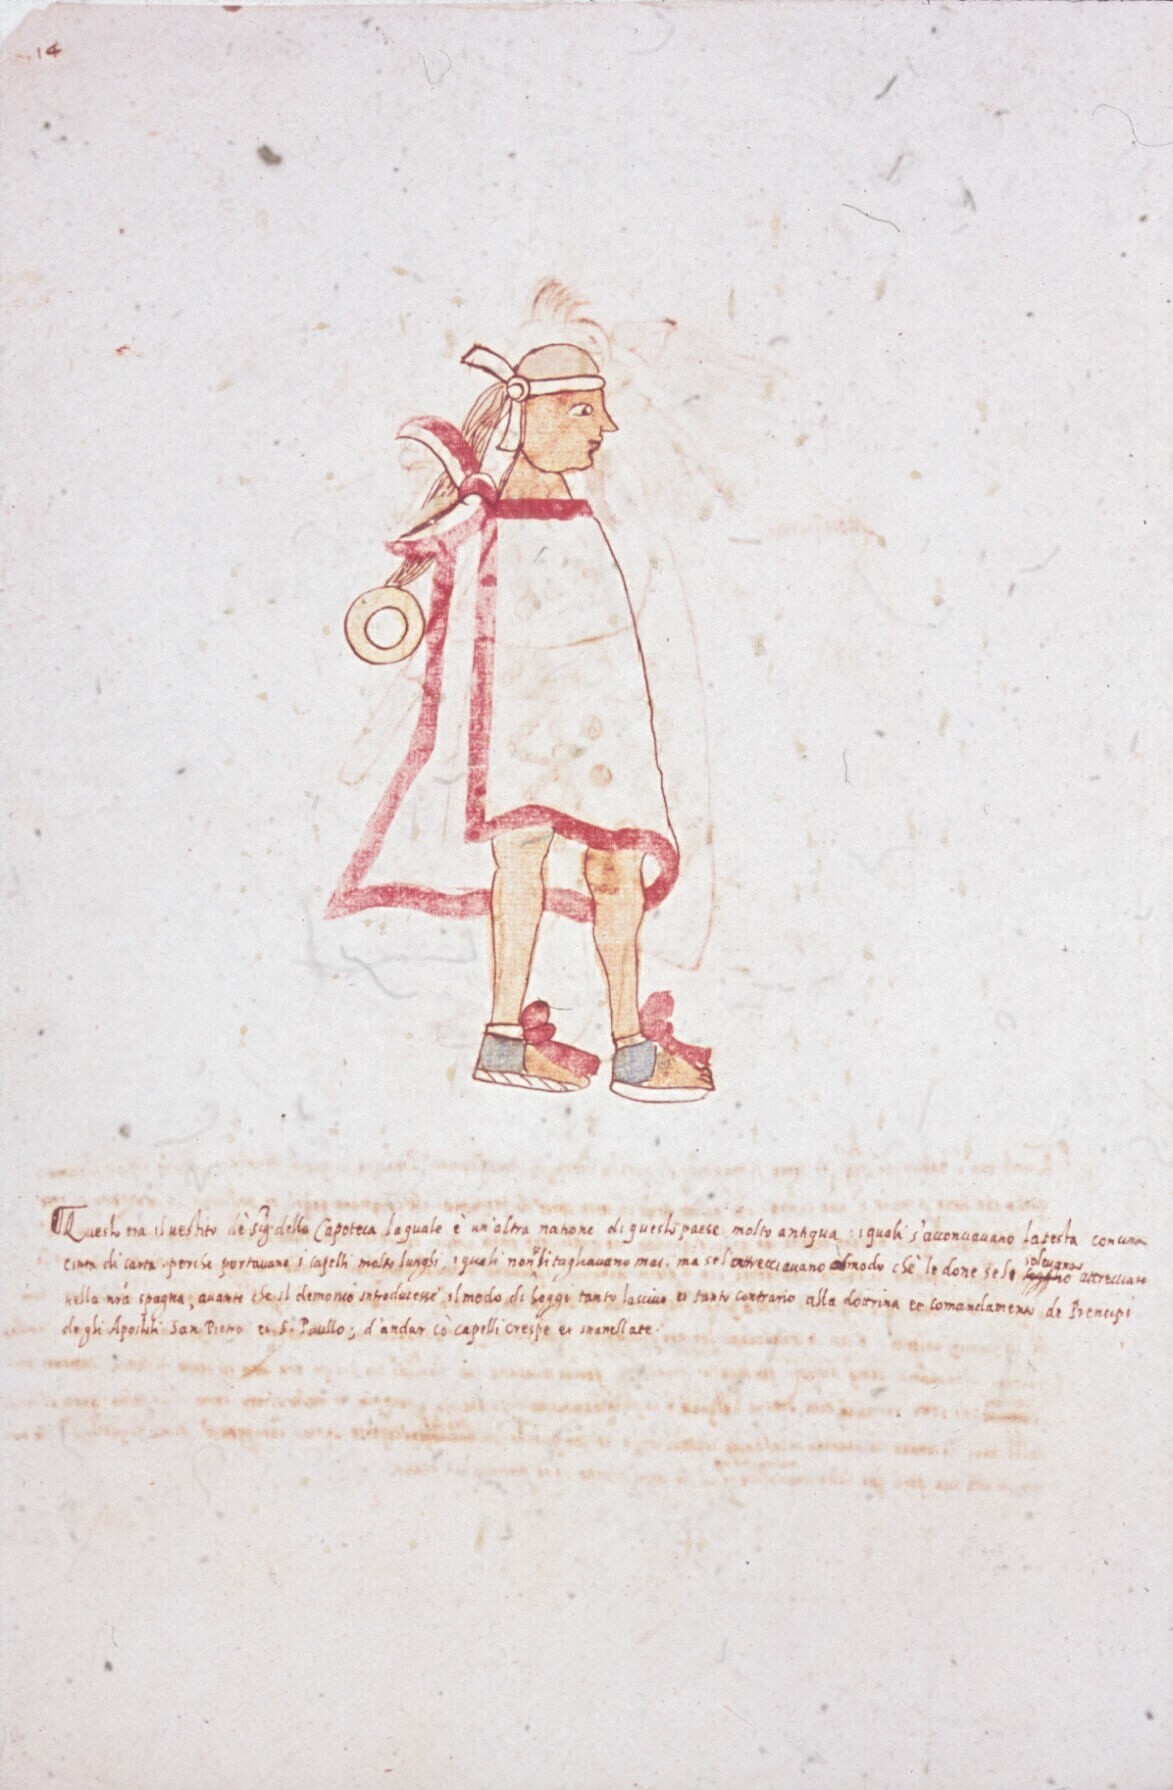 14
Questo era il vestito de Sig.ri della Çapoteca laquale è un'altra natione di questi paese molto antigua : i quali s'acconciavano la testa con una
cinta di carta perche portavano i capelli molto lunghi, i quali non li tagliavano mai. ma se l'attrecciavano al modo chè le done se le solevano attrecciare
nella n̄ra spagna, avante che il demonio introducesse il modo di hoggi tanto lascivo et tanto contrario alla dottrina et comandamento de Prencipi
degli Apostoli San Pietro et S. Paullo; d'andar cō capelli crespe et inanellate.